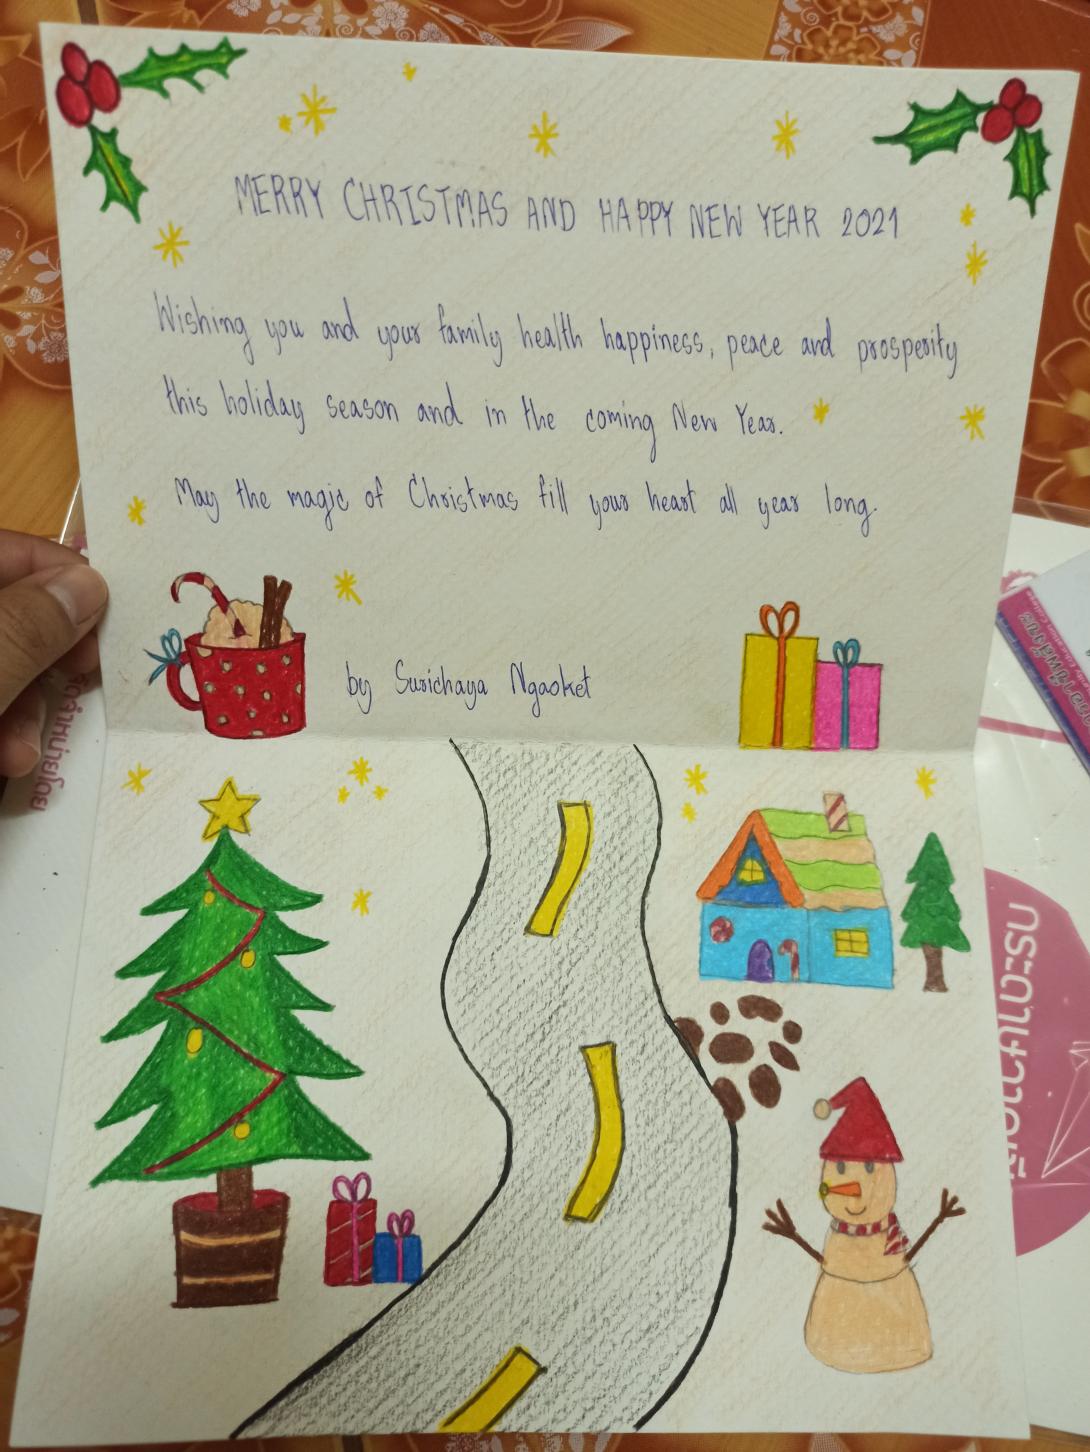 MERRY CHRISTMAS AND HAPPY NEW YEAR 2021
Wishing you and your family health happiness, peace and prosperity
this holiday season and in the coming New Year.
May the magic of Christmas fill your heart all year long.
by Surichaya Ngaoket